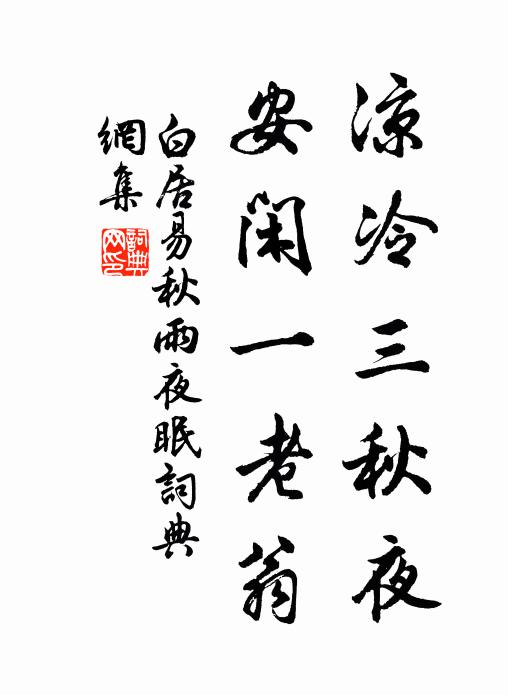 凉冷三秋夜
安閑一老翁
白居易秋雨夜眠詞典
網集
詞典網印